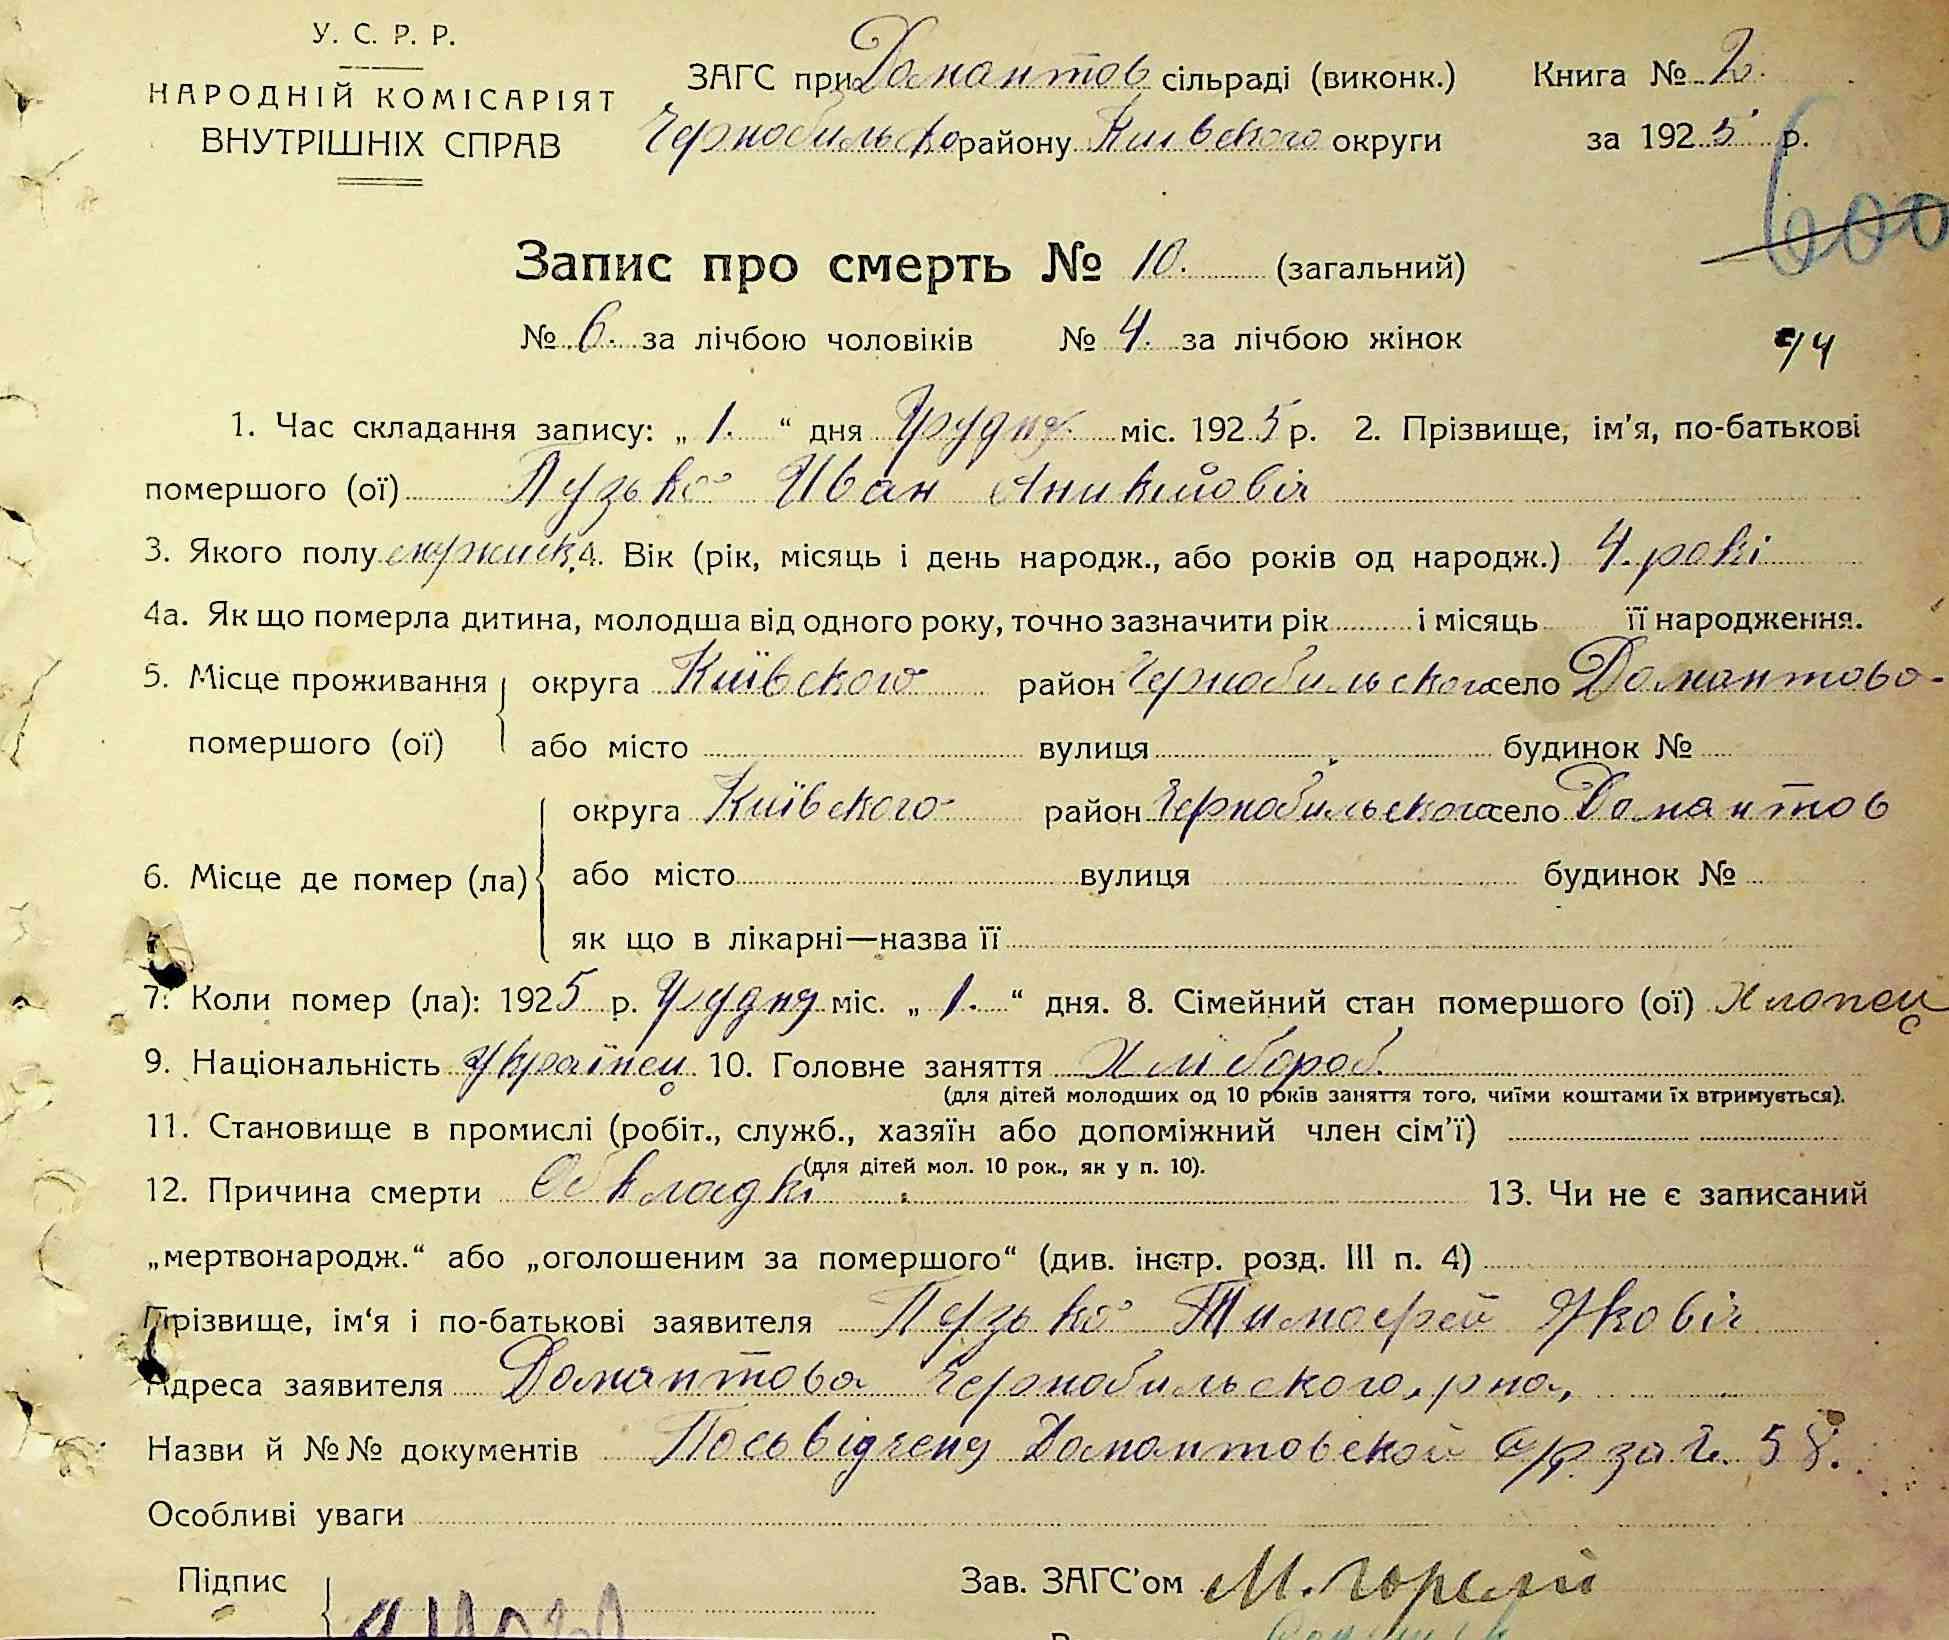 У. С. Р. Р.
НАРОДНІЙ КОМІСАРІЯТ
ВНУТРІШНІХ СПРАВ
ЗАГС при Домантов сільраді (виконк.) Книга № 2.
Чернобильско району Київского округи за 1925 р.
600
Запис про смерть № 10. (загальний)
№ 6. за лічбою чоловіків № 4. за лічбою жінок
1. Час складання запису: „ 1. “ дня Грудня міс. 1925 р. 2. Прізвище, ім'я, по-батькові
помершого (ої) Пузько Иван Аникийовіч
3. Якого полу мужиск 4. Вік (рік, місяць і день народж., або років од народж.) 4. рокі
4а. Як що померла дитина, молодша від одного року, точно зазначити рік і місяць її народження.
5. Місце проживання округа Київского район Чернобильского село Домантово
помершого (ої) або місто вулиця будинок №
округа Київского район Чернобильского село Домантов
6. Місце де помер (ла) або місто вулиця будинок №
як що в лікарні—назва її
7. Коли помер (ла): 1925 р. Грудня міс. „ 1. “ дня. 8. Сімейний стан помершого (ої) Хлопец
9. Національність Українец 10. Головне заняття Хлібороб.
(для дітей молодших од 10 років заняття того, чиїми коштами їх втримується).
11. Становище в промислі (робіт., служб., хазяїн або допоміжний член сім'ї)
(для дітей мол. 10 рок., як у п. 10).
12. Причина смерти Обкладкі 13. Чи не є записаний
„мертвонародж.“ або „оголошеним за помершого“ (див. інстр. розд. III п. 4)
Прізвище, ім‘я і по-батькові заявителя Пузько Тимофей Яковіч
Адреса заявителя Домантова Чернобильского, рна,
Назви й №№ документів Посьвідченя Домантовской с/р. за № 58.
Особливі уваги
Підпис Зав. ЗАГС'ом М. Горелій